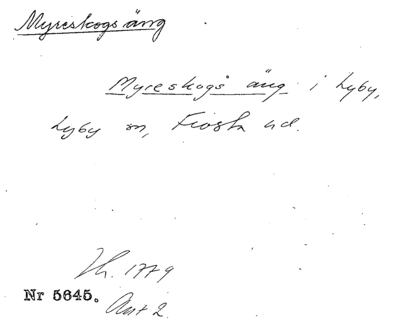 Myreskogs äng
Myreskogs äng i Lyby,
Lyby sn, Frosta hd.
Th. 1779
Nr 5645. Akt 2